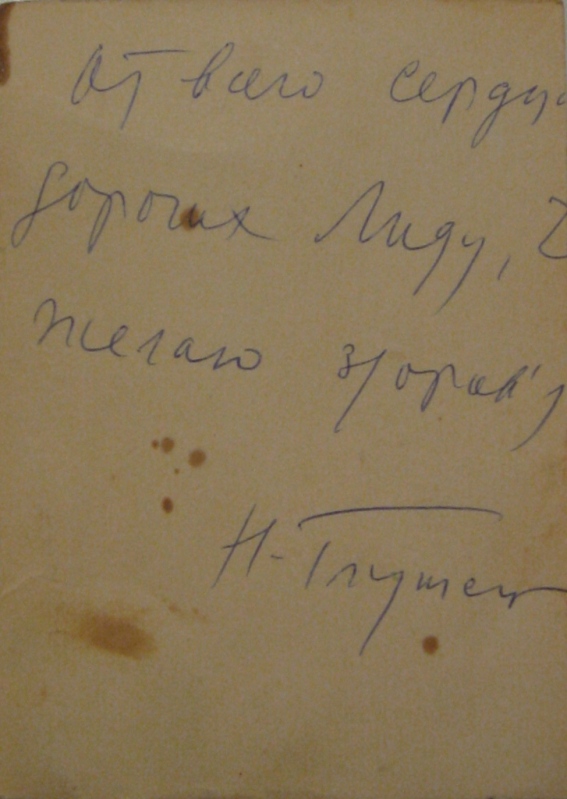 От всего сердца
дорогих Лиду,
желаю здоров'я
Н. Глущен